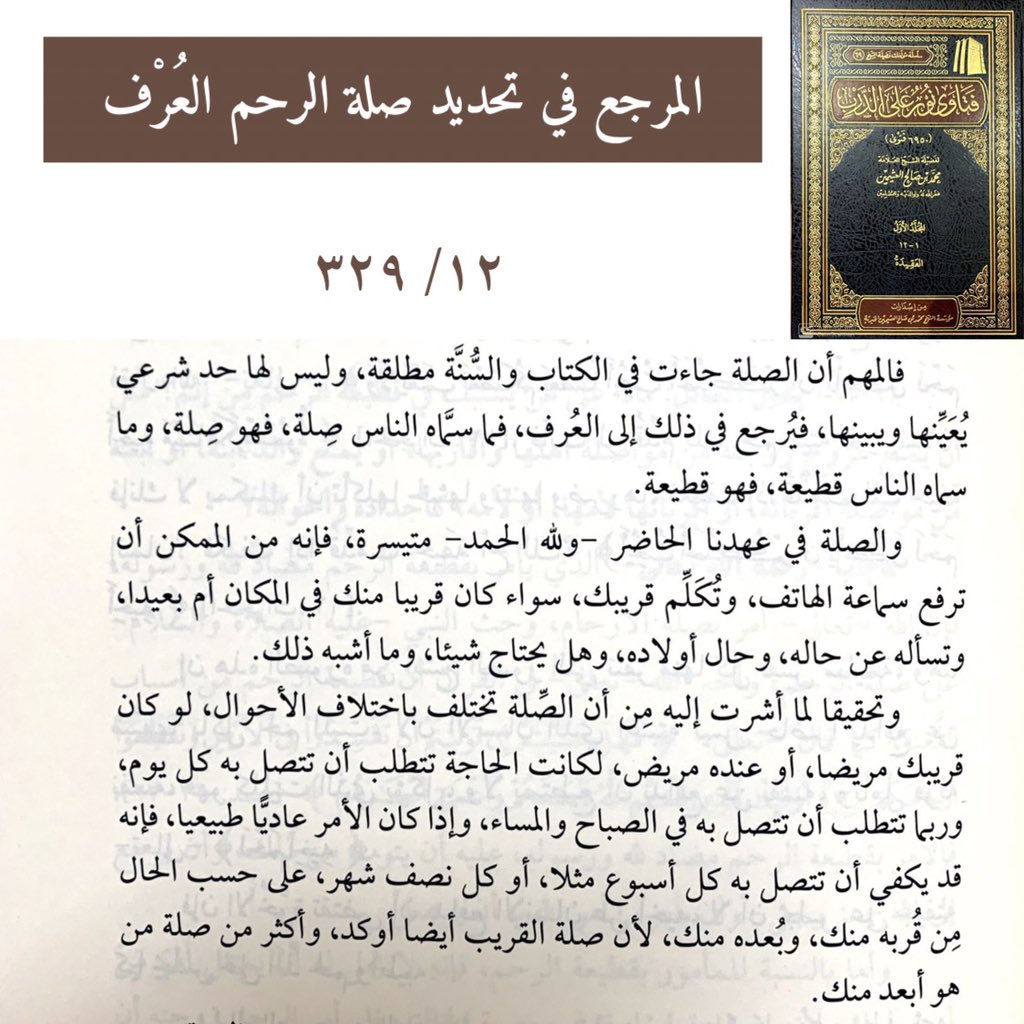 المرجع في تحديد صلة الرحم العُرْف
١٢/ ٣٢٩
فتاوى نور على الدرب
(٦٩٥٠ فتوى)
لفضيلة الشيخ العلامة
محمد بن صالح العثيمين
غفر الله له ولوالديه وللمسلمين
المجلد الأول
١-١٢
العقيدة
من إصدارات
مؤسسة الشيخ محمد بن صالح العثيمين الخيرية
فالمهم أن الصلة جاءت في الكتاب والسُّنَّة مطلقة، وليس لها حد شرعي
يُعَيِّنها ويبينها، فيُرجع في ذلك إلى العُرف، فما سمَّاه الناس صِلة، فهو صِلة، وما
سماه الناس قطيعة، فهو قطيعة.
والصلة في عهدنا الحاضر -ولله الحمد- متيسرة، فإنه من الممكن أن
ترفع سماعة الهاتف، وتُكَلِّم قريبك، سواء كان قريبا منك في المكان أم بعيدا،
وتسأله عن حاله، وحال أولاده، وهل يحتاج شيئا، وما أشبه ذلك.
وتحقيقا لما أشرت إليه مِن أن الصِّلة تختلف باختلاف الأحوال، لو كان
قريبك مريضا، أو عنده مريض، لكانت الحاجة تتطلب أن تتصل به كل يوم،
وربما تتطلب أن تتصل به في الصباح والمساء، وإذا كان الأمر عاديًّا طبيعيا، فإنه
قد يكفي أن تتصل به كل أسبوع مثلا، أو كل نصف شهر، على حسب الحال
مِن قُربه منك، وبُعده منك، لأن صلة القريب أيضا أوكد، وأكثر من صلة من
هو أبعد منك.